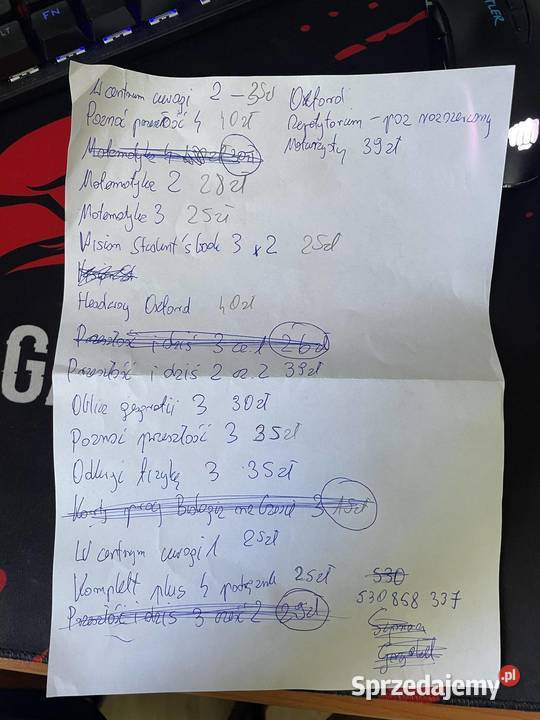 W centrum uwagi 2 – 35zł
Poznać przeszłość 4 40zł
Matematyka 4
Matematyka 2 28zł
Matematyka 3 25zł
Vision Student's book 3 x 2 25zł
Headway Oxford 40zł
Przeszłość i dziś 3 cz. 1 26zł
Przeszłość i dziś 2 cz. 2 39zł
Oblicza geografii 3 30zł
Poznać przeszłość 3 35zł
Odkryć fizykę 3 35zł
Karty pracy Biologia na Czasie 3 15zł
W centrum uwagi 1 25zł
Komplet plus 4 podręcznik 25zł
Przeszłość i dziś 3 część 2 29zł
Oxford
Repetytorium – poz rozszerzony
Maturzysty 39zł
530
530 868 337
Sprzedajemy.pl
FN